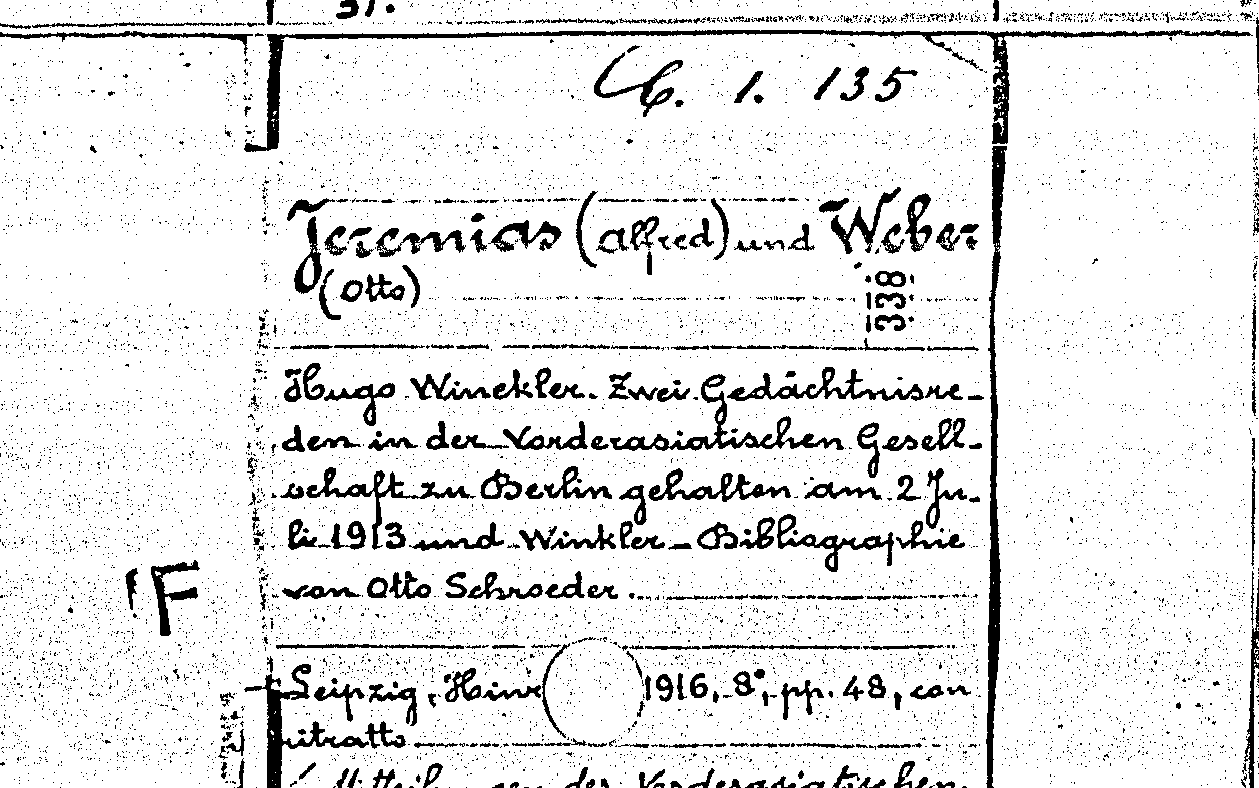 31.
C. 1. 135
Jeremias (Alfred) und Weber
(Otto)
338
Hugo Winckler. Zwei Gedächtnisre-
den in der Vorderasiatischen Gesell-
schaft zu Berlin gehalten am 2 Ju-
li 1913 und Winkler-Bibliographie
von Otto Schroeder.
F
Leipzig, Hinr 1916, 8°, pp. 48, con
ritratto
Mitteil der Vorderasiatischen